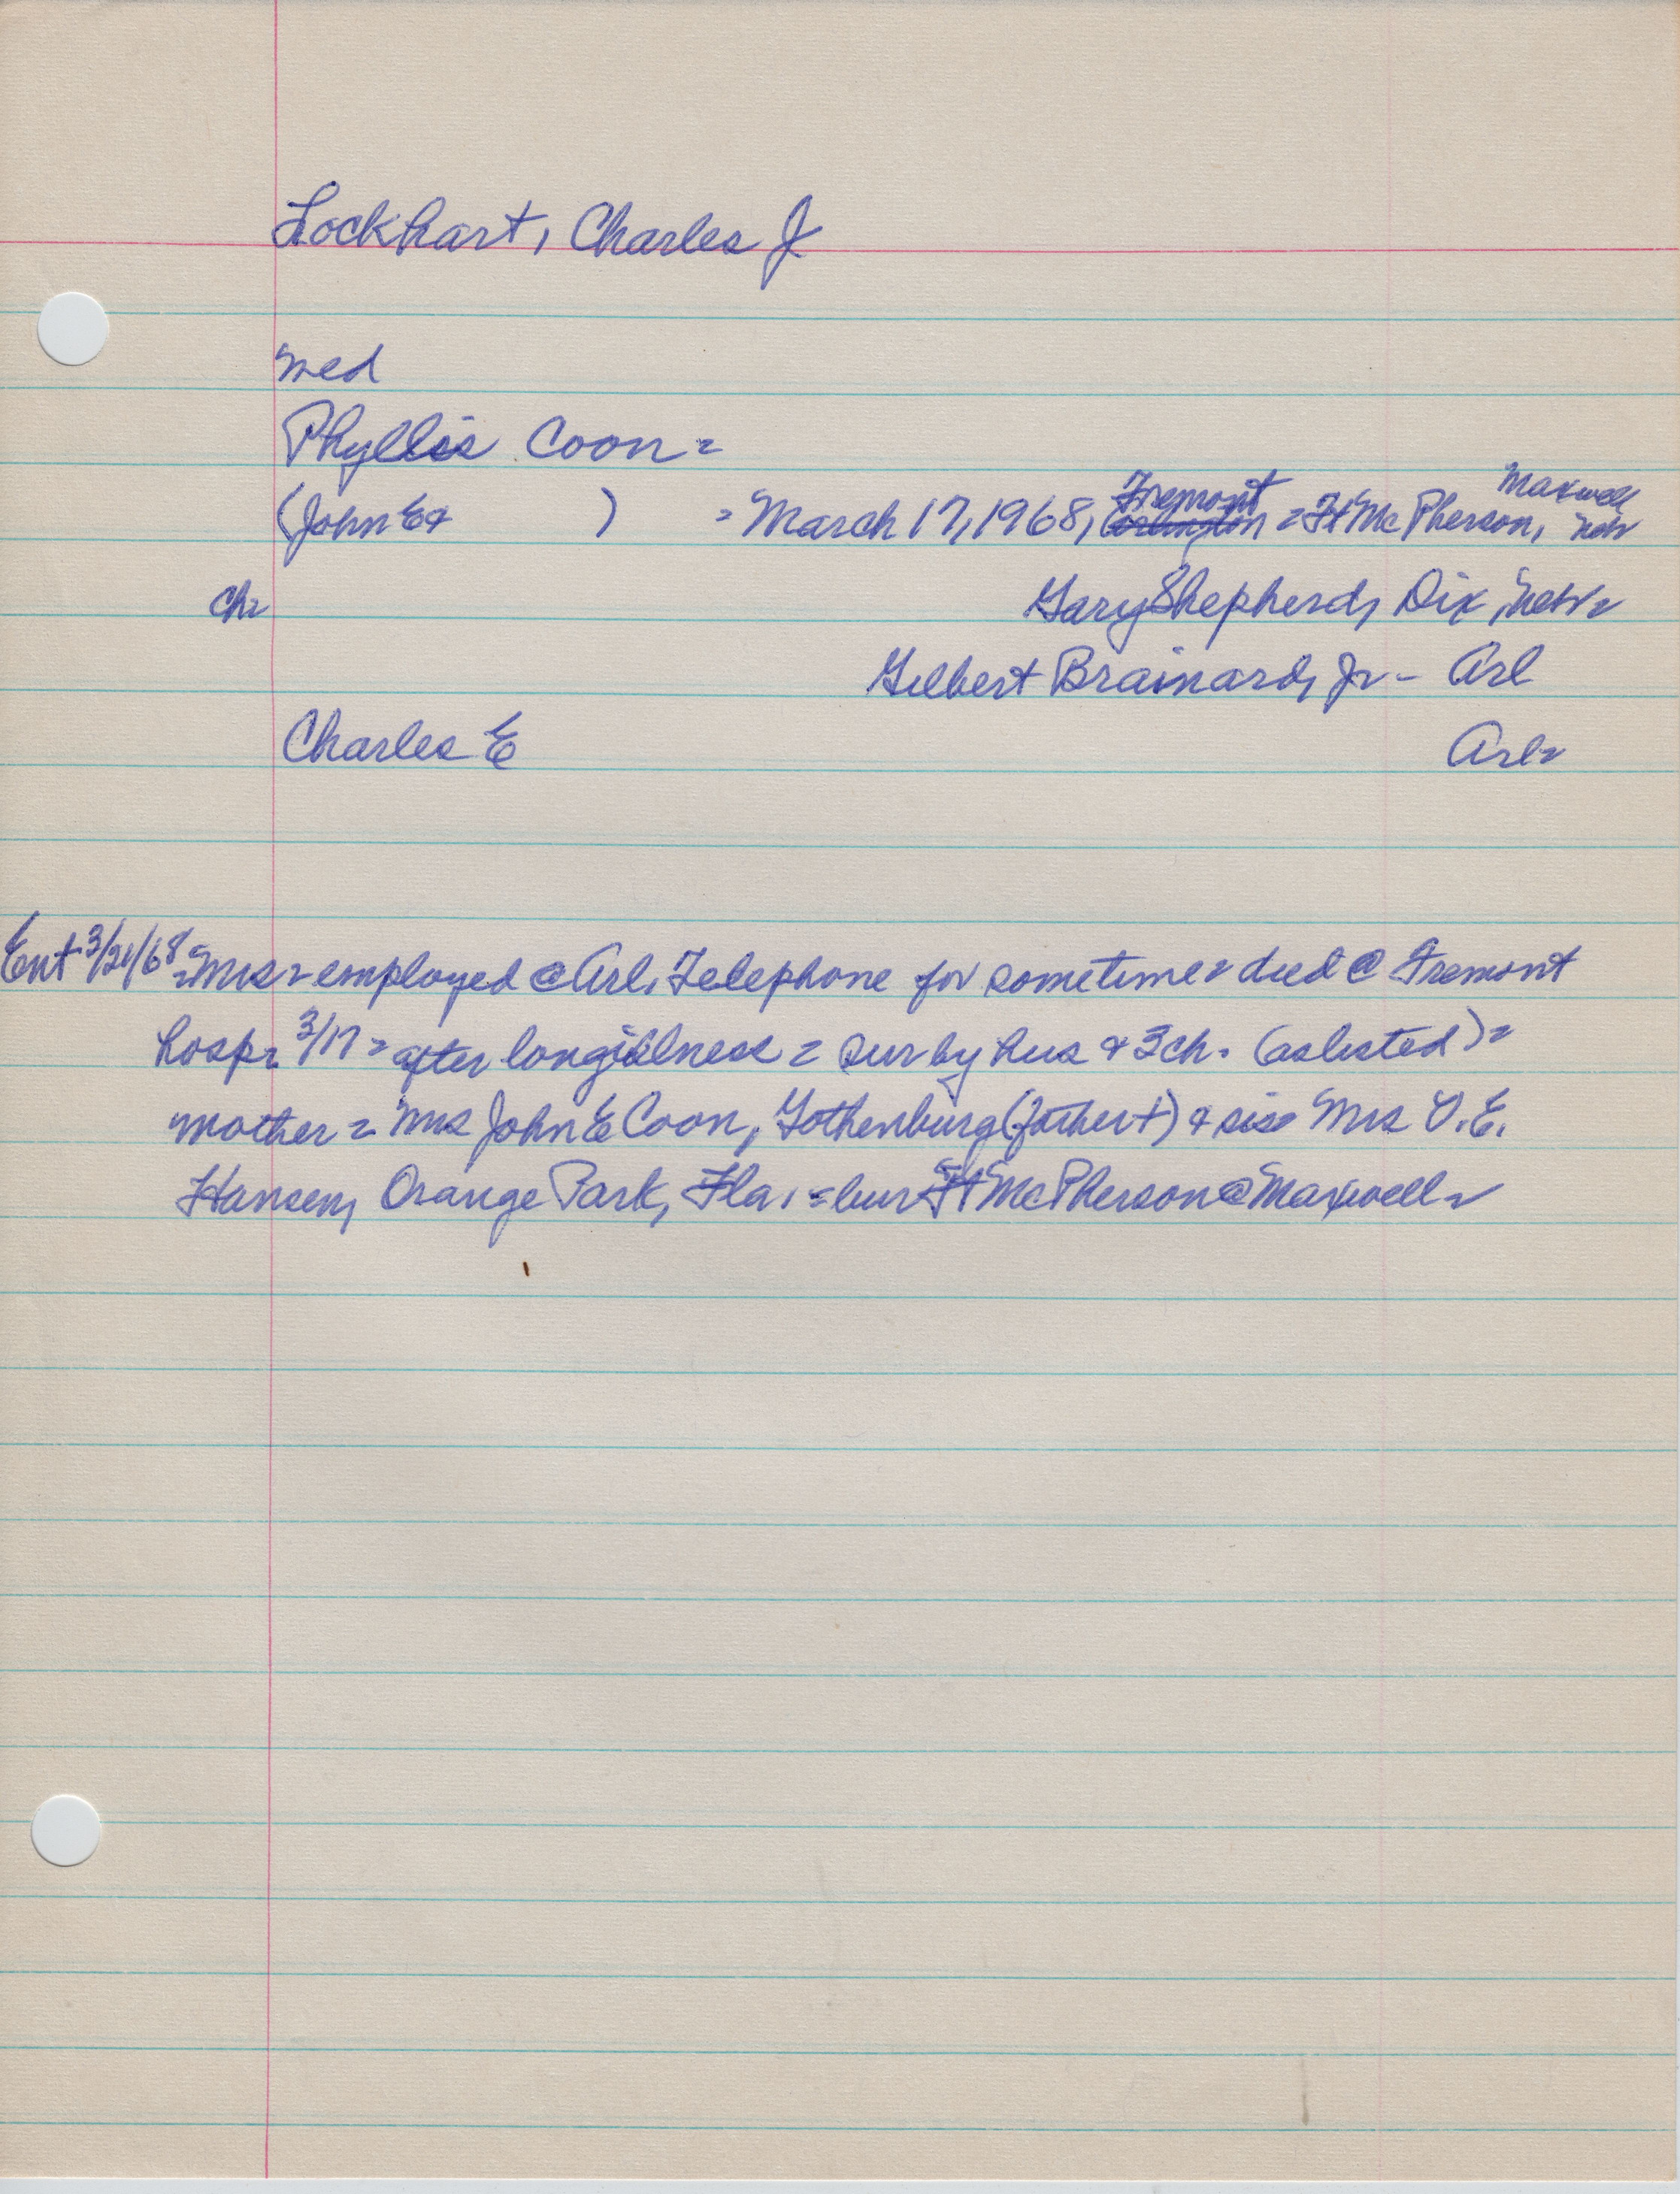 Lockhart, Charles J
med
Phyllis Coon =
(John E &          ) = March 17, 1968, Fremont = Ft McPherson, Maxwell Nebr
Ch= Gary Shepherd, Dix, Nebr=
Gilbert Brainard, Jr - Arl
Charles E Arl=
Ent 3/21/68 = Mrs = employed @ Arl. Telephone for sometime = died @ Fremont
hosp = 3/17 = after long illness = sur by hus & 3 ch. (as listed) =
mother = Mrs John E Coon, Gothenburg (father +) & sis = Mrs V.E.
Hansen, Orange Park, Fla. = bur Ft McPherson @ Maxwell =